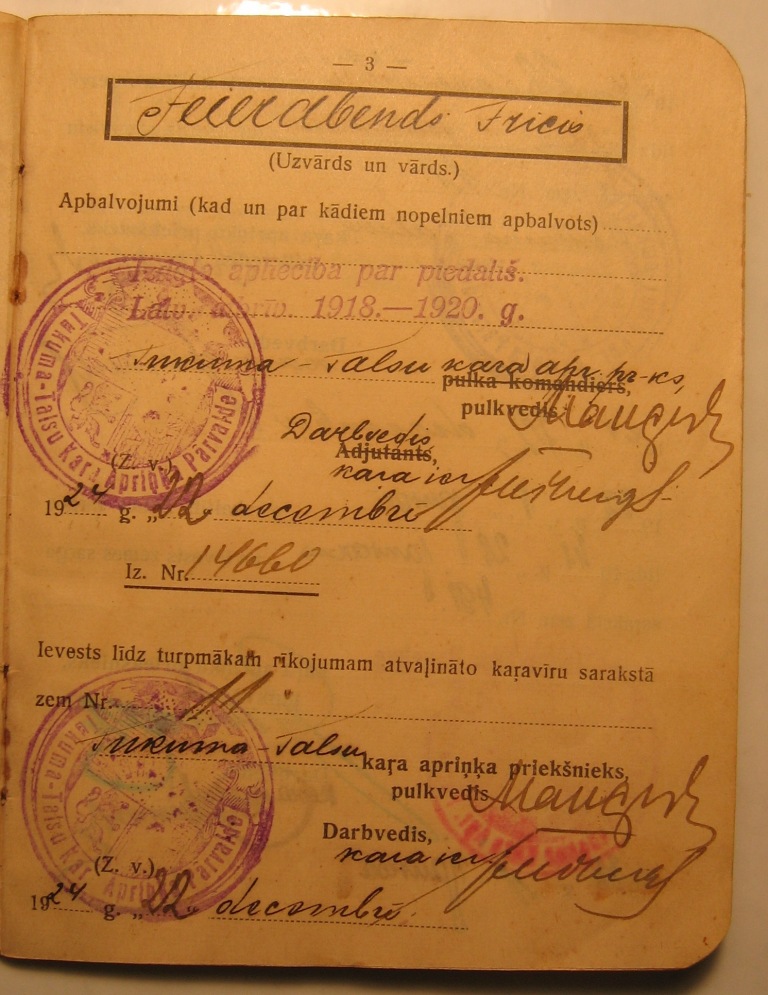 — 3 —
Feierabends Fricis
(Uzvārds un vārds.)
Apbalvojumi (kad un par kādiem nopelniem apbalvots)
Izdota apliecība par piedališ.
Latv. atbrīv. 1918.—1920. g.
Tukuma-Talsu kara apr. pr-ks,
pulka komandiers,
pulkvedis
Darbvedis
Adjutants,
kara ier
(Z. v.)
1924 g. „22„ decembrī
Iz. Nr. 14660
Ievests līdz turpmākam rīkojumam atvaļināto kaŗavīru sarakstā
zem Nr. 11.
Tukuma-Talsu kaŗa apriņķa priekšnieks,
pulkvedis
Darbvedis,
kara ier
(Z. v.)
1924 g. „22„ decembrī.
Tukuma-Talsu Kaŗa Apriņķa Pārvalde
Tukuma-Talsu Kaŗa Apriņķa Pārvalde